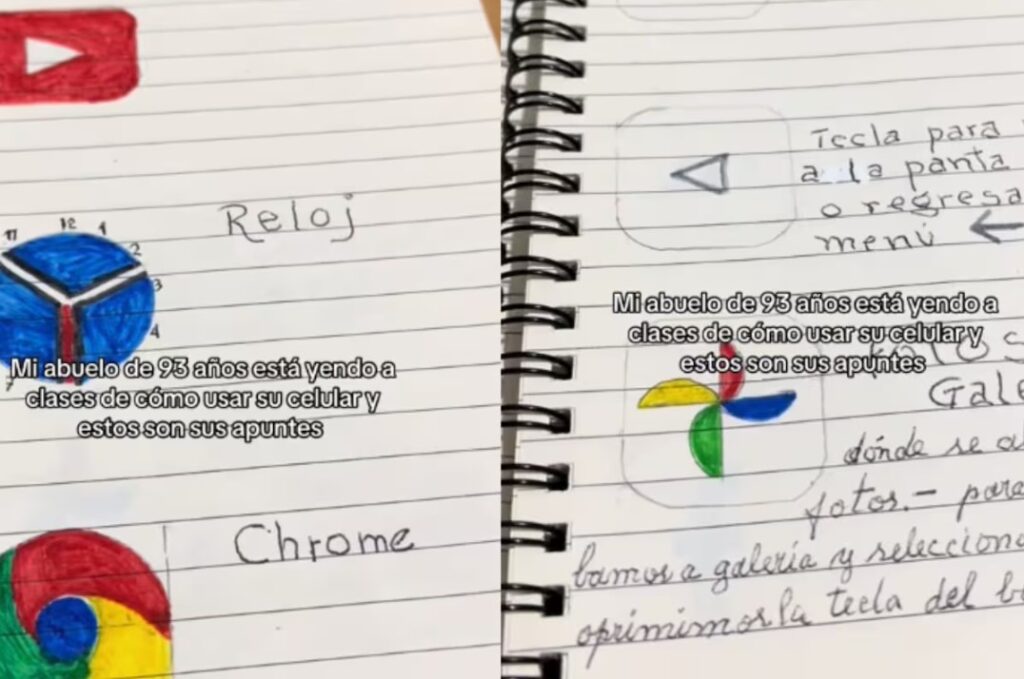 Reloj
11 12 1
2
3
4
7
Mi abuelo de 93 años está yendo a
clases de cómo usar su celular y
estos son sus apuntes
Chrome
Tecla para
a la panta
o regresa
menú
Mi abuelo de 93 años está yendo a
clases de cómo usar su celular y
estos son sus apuntes
Gale
dónde se a
fotos.- para
bamos a galería y selecciona
oprimimos la tecla del b